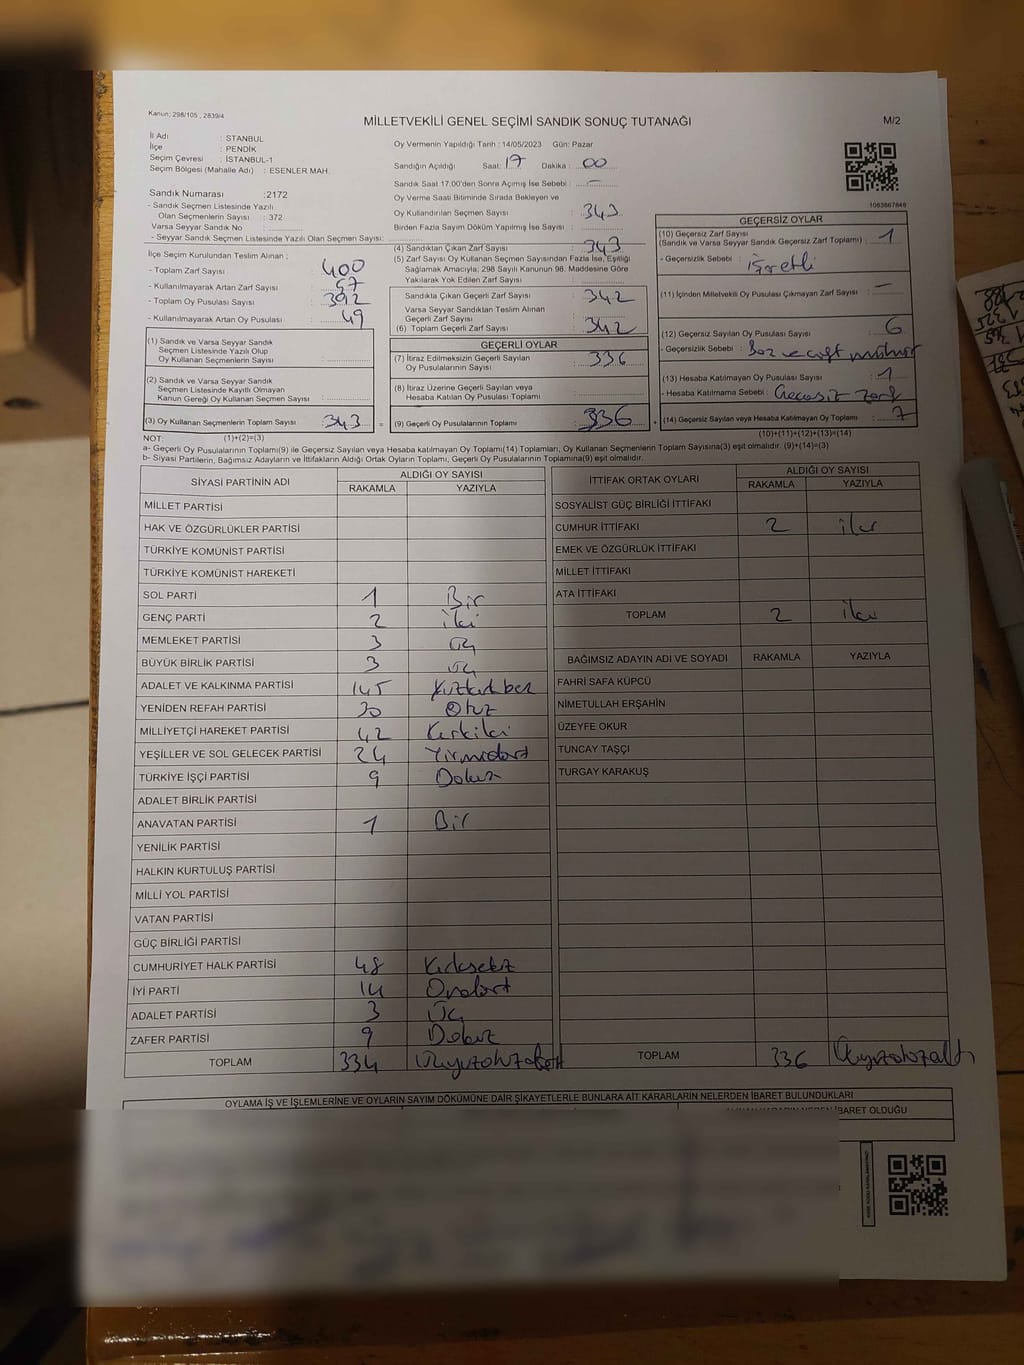 Kanun; 298/105 , 2839/4
MİLLETVEKİLİ GENEL SEÇİMİ SANDIK SONUÇ TUTANAĞI
M/2
İl Adı : STANBUL
İlçe : PENDİK
Seçim Çevresi : İSTANBUL-1
Seçim Bölgesi (Mahalle Adı) : ESENLER MAH.
Oy Vermenin Yapıldığı Tarih : 14/05/2023 Gün: Pazar
Sandığın Açıldığı Saat: 17 Dakika : 00
Sandık Saat 17.00'den Sonra Açımış İse Sebebi : –
Oy Verme Saati Bitiminde Sırada Bekleyen ve
Oy Kullandırılan Seçmen Sayısı : 343
Birden Fazla Sayım Döküm Yapılmış İse Sayısı :
1083667848
Sandık Numarası :2172
- Sandık Seçmen Listesinde Yazılı
Olan Seçmenlerin Sayısı : 372
Varsa Seyyar Sandık No :
- Seyyar Sandık Seçmen Listesinde Yazılı Olan Seçmen Sayısı:
İlçe Seçim Kurulundan Teslim Alınan ;
- Toplam Zarf Sayısı : 400
- Kullanılmayarak Artan Zarf Sayısı : 57
- Toplam Oy Pusulası Sayısı : 392
- Kullanılmayarak Artan Oy Pusulası : 49
(1) Sandık ve Varsa Seyyar Sandık
Seçmen Listesinde Yazılı Olup
Oy Kullanan Seçmenlerin Sayısı :
(2) Sandık ve Varsa Seyyar Sandık
Seçmen Listesinde Kayıtlı Olmayan
Kanun Gereği Oy Kullanan Seçmen Sayısı :
(3) Oy Kullanan Seçmenlerin Toplam Sayısı : 343 =
(4) Sandıktan Çıkan Zarf Sayısı : 343
(5) Zarf Sayısı Oy Kullanan Seçmen Sayısından Fazla İse, Eşitliği
Sağlamak Amacıyla; 298 Sayılı Kanunun 98. Maddesine Göre
Yakılarak Yok Edilen Zarf Sayısı :
Sandıkta Çıkan Geçerli Zarf Sayısı : 342
Varsa Seyyar Sandıktan Teslim Alınan
Geçerli Zarf Sayısı :
(6) Toplam Geçerli Zarf Sayısı : 342
GEÇERLİ OYLAR
(7) İtiraz Edilmeksizin Geçerli Sayılan
Oy Pusulalarının Sayısı : 336
(8) İtiraz Üzerine Geçerli Sayılan veya
Hesaba Katılan Oy Pusulası Toplamı :
(9) Geçerli Oy Pusulalarının Toplamı : 336 +
GEÇERSİZ OYLAR
(10) Geçersiz Zarf Sayısı
(Sandık ve Varsa Seyyar Sandık Geçersiz Zarf Toplamı) : 1
- Geçersizlik Sebebi : İşaretli
(11) İçinden Milletvekili Oy Pusulası Çıkmayan Zarf Sayısı : –
(12) Geçersiz Sayılan Oy Pusulası Sayısı : 6
- Geçersizlik Sebebi : Boz ve çift mühür
(13) Hesaba Katılmayan Oy Pusulası Sayısı : 1
- Hesaba Katılmama Sebebi : Geçersiz zarf
(14) Geçersiz Sayılan veya Hesaba Katılmayan Oy Toplamı : 7
NOT: (1)+(2)=(3) (10)+(11)+(12)+(13)=(14)
a- Geçerli Oy Pusulalarının Toplamı(9) ile Geçersiz Sayılan veya Hesaba Katılmayan Oy Toplamı(14) Toplamları, Oy Kullanan Seçmenlerin Toplam Sayısına(3) eşit olmalıdır. (9)+(14)=(3)
b- Siyasi Partilerin, Bağımsız Adayların ve İttifakların Aldığı Ortak Oyların Toplamı, Geçerli Oy Pusulalarının Toplamına(9) eşit olmalıdır.
SİYASİ PARTİNİN ADI ALDIĞI OY SAYISI
RAKAMLA YAZIYLA
MİLLET PARTİSİ
HAK VE ÖZGÜRLÜKLER PARTİSİ
TÜRKİYE KOMÜNİST PARTİSİ
TÜRKİYE KOMÜNİST HAREKETİ
SOL PARTİ 1 Bir
GENÇ PARTİ 2 iki
MEMLEKET PARTİSİ 3 üç
BÜYÜK BİRLİK PARTİSİ 3 üç
ADALET VE KALKINMA PARTİSİ 145 Yüzkırkbeş
YENİDEN REFAH PARTİSİ 30 Otuz
MİLLİYETÇİ HAREKET PARTİSİ 42 Kırkiki
YEŞİLLER VE SOL GELECEK PARTİSİ 24 Yirmidört
TÜRKİYE İŞÇİ PARTİSİ 9 Dokuz
ADALET BİRLİK PARTİSİ
ANAVATAN PARTİSİ 1 Bir
YENİLİK PARTİSİ
HALKIN KURTULUŞ PARTİSİ
MİLLİ YOL PARTİSİ
VATAN PARTİSİ
GÜÇ BİRLİĞİ PARTİSİ
CUMHURİYET HALK PARTİSİ 48 Kırksekiz
İYİ PARTİ 14 Ondört
ADALET PARTİSİ 3 Üç
ZAFER PARTİSİ 9 Dokuz
TOPLAM 334 Üçyüzotuzdört
İTTİFAK ORTAK OYLARI ALDIĞI OY SAYISI
RAKAMLA YAZIYLA
SOSYALİST GÜÇ BİRLİĞİ İTTİFAKI
CUMHUR İTTİFAKI 2 iki
EMEK VE ÖZGÜRLÜK İTTİFAKI
MİLLET İTTİFAKI
ATA İTTİFAKI
TOPLAM 2 iki
BAĞIMSIZ ADAYIN ADI VE SOYADI RAKAMLA YAZIYLA
FAHRİ SAFA KÜPCÜ
NİMETULLAH ERŞAHİN
ÜZEYFE OKUR
TUNCAY TAŞÇI
TURGAY KARAKUŞ
TOPLAM 336 Üçyüzotuzaltı
OYLAMA İŞ VE İŞLEMLERİNE VE OYLARIN SAYIM DÖKÜMÜNE DAİR ŞİKAYETLERLE BUNLARA AİT KARARLARIN NELERDEN İBARET BULUNDUKLARI
İBARET OLDUĞU